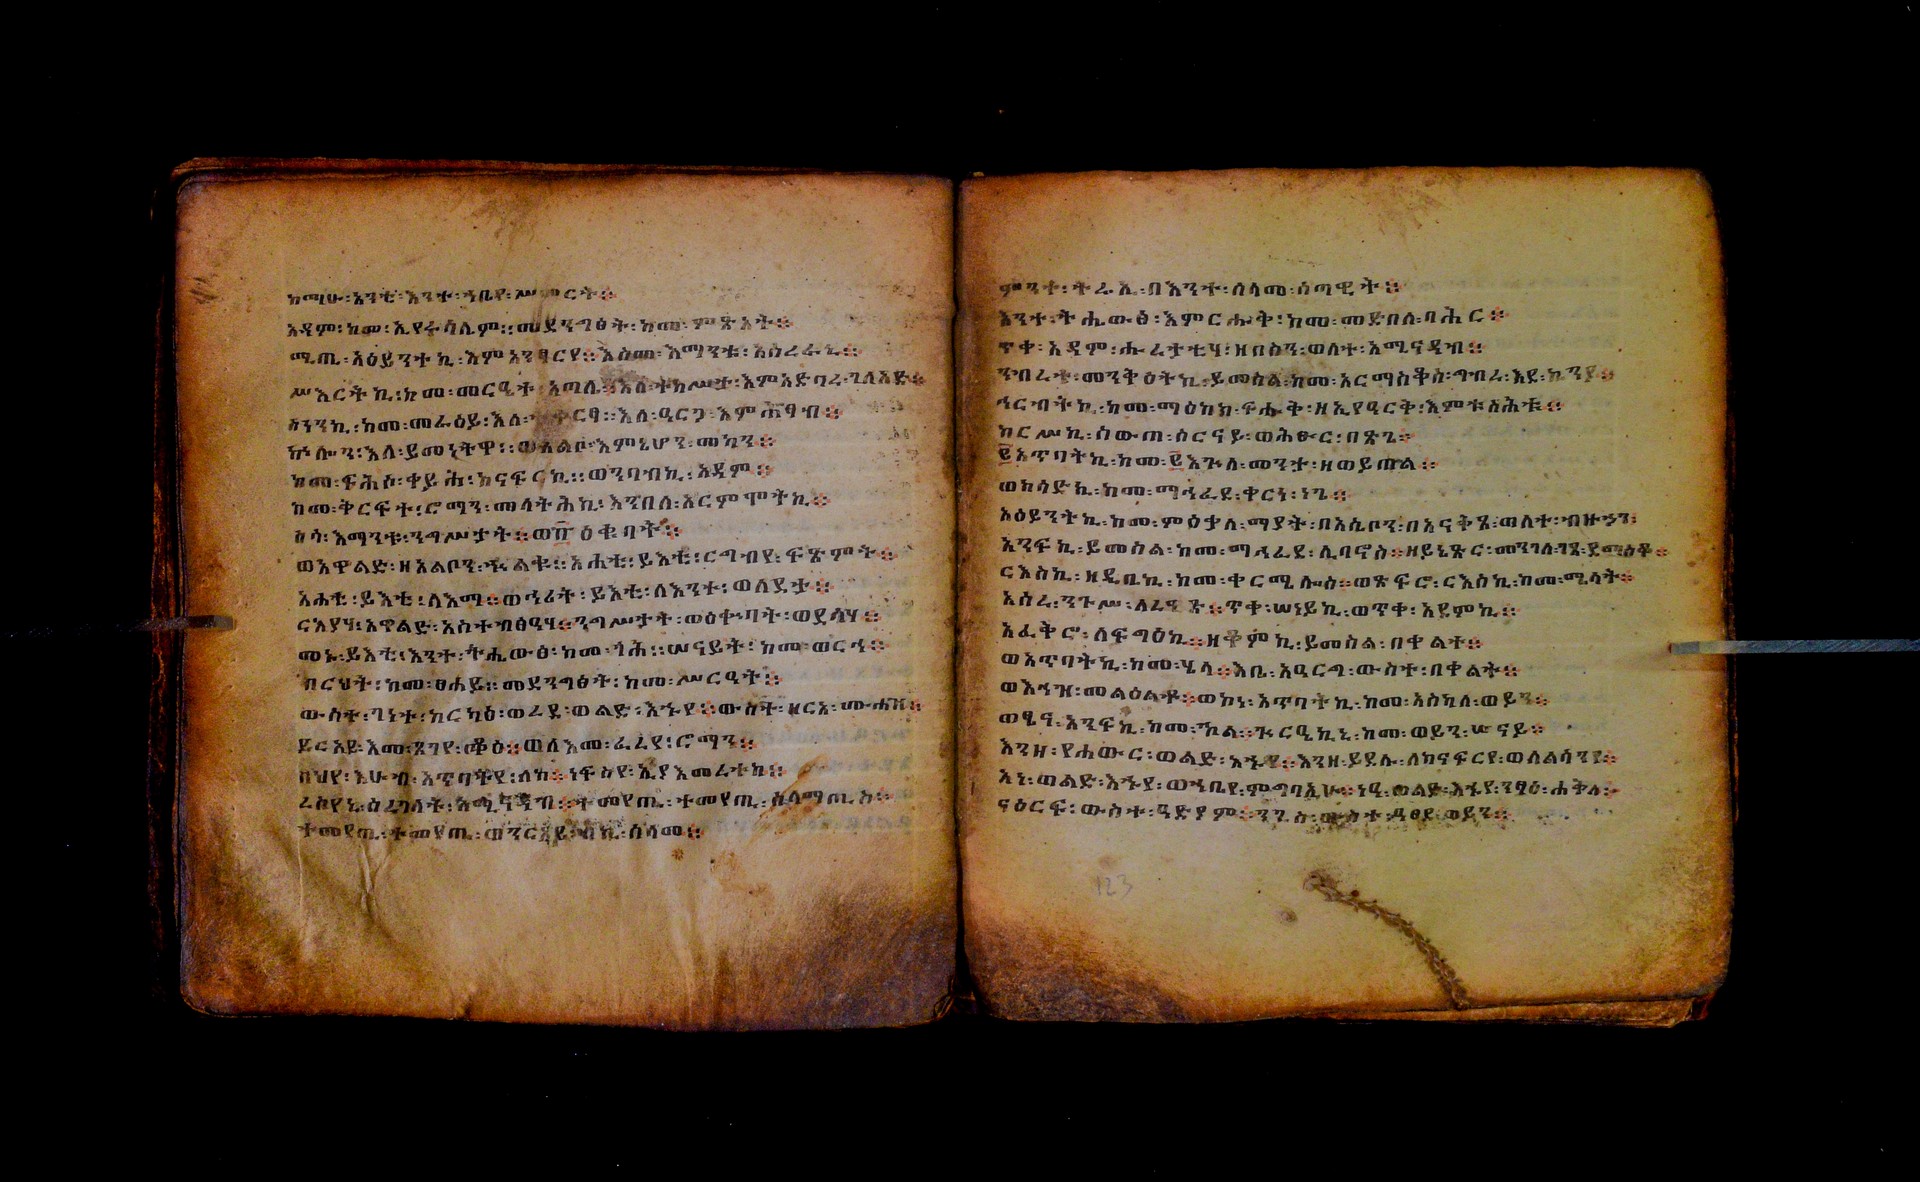 ከማሁ፡አንቲ፡እንተ፡ኀቤየ፡ሥምርት።
አዳም፡ከመ፡ኢየሩሳሌም።መደንግፅት፡ከመ፡ምጽአት።
ሚጢ፡አዕይንተኪ፡እምአንፃርየ።እስመ፡እማንቱ፡አስረራኒ።
ሥእርትኪ፡ከመ፡መርዔተ፡አጣሊ።እለ፡ተከሥታ፡እምአድባረ፡ገለአድ።
ስነንኪ፡ከመ፡መራዕይ፡እለ፡ተቀርፃ።እለ፡ዐርጋ፡እምሐፃብ።
ኵሎን፡እለ፡ይመነትዋ።ወአልቦ፡እምኔሆን፡መካን።
ከመ፡ፍሕሶ፡ቀይሕ፡ከናፍርኪ።ወንባብኪ፡አዳም።
ከመ፡ቅርፍተ፡ሮማን፡መላትሕኪ፡እንበለ፡አርምሞትኪ።
፷፡እማንቱ፡ንግሥታት።ወ፹ዕቁባት።
ወአዋልድ፡ዘአልቦን፡ኈልቁ።አሐቲ፡ይእቲ፡ርግብየ፡ፍጽምት።
አሐቲ፡ይእቲ፡ለእማ።ወኅሪት፡ይእቲ፡ለእንተ፡ወለደታ።
ርእያሃ፡አዋልድ፡አስተብፅዓሃ።ንግሥታት፡ወዕቁባት፡ወደሳሃ።
መኑ፡ይእቲ፡እንተ፡ትሔውፅ፡ከመ፡ጎሕ።ሠናይት፡ከመ፡ወርኅ።
ብርህት፡ከመ፡ፀሐይ።መደንግፅት፡ከመ፡ሥርዓት።
ውስተ፡ገነተ፡ከርካዕ፡ወረደ፡ወልድ፡እኁየ።ውስተ፡ዘርአ፡ሙሐዝ።
ይርአይ፡እመ፡ጸገየ፡ቆዕ።ወለእመ፡ፈረየ፡ሮማን።
በህየ፡እሁብ፡አጥባትየ፡ለከ።ነፍስየ፡ኢየአመረተከ።
ረሰየኒ፡ሰረገላት፡አሚናዳብ።ተመየጢ፡ተመየጢ፡ሰላማጢስ።
ተመየጢ፡ተመየጢ፡ወንርአይ፡ብኪ፡ሰላመ።
ምንተ፡ትሬኢ፡በእንተ፡ሰላመ፡ሰጣዊት።
እንተ፡ትሔውፅ፡እምርሑቅ፡ከመ፡መድበለ፡ባሕር።
ጥቀ፡አዳም፡ሑረታቲሃ፡ዘበስን፡ወለተ፡አሚናዳብ።
ንብረተ፡መንቅዕትኪ፡ይመስል፡ከመ፡አርማስቆስ፡ግብረ፡እደ፡ኬንያ።
ኅርብትኪ፡ከመ፡ማዕከክ፡ፍሑቅ፡ዘኢየዓርቅ፡እምቱስሕቱ።
ከርሥኪ፡ክውጠ፡ስርናይ፡ወሕፁር፡በጽጌ።
፪አጥባትኪ፡ከመ፡፪እጕለ፡መንታ፡ዘወይጠል።
ወክሳድኪ፡ከመ፡ማኅፈደ፡ቀርነ፡ነጌ።
አዕይንትኪ፡ከመ፡ምዕቃለ፡ማያት፡በእሴቦን፡በአናቅጸ፡ወለተ፡ብዙኃን፡
አንፍኪ፡ይመስል፡ከመ፡ማኅፈደ፡ሊባኖስ።ዘይኔጽር፡መንገለ፡ገጸ፡ደማስቆ።
ርእስኪ፡ዘዲቤኪ፡ከመ፡ቀርሜሎስ።ወጽፍሮ፡ርእስኪ፡ከመ፡ሜላት።
እስረ፡ንጉሥ፡ለረዓጽ።ጥቀ፡ሠነይኪ፡ወጥቀ፡አደምኪ።
አፈቅሮ፡ለፍግዕኪ።ዘቆምኪ፡ይመስል፡በቀልተ።
ወአጥባትኪ፡ከመ፡ሄላ።እቤ፡አዓርግ፡ውስተ፡በቀልት።
ወእኅዝ፡መልዕልቶ።ወኮነ፡አጥባትኪ፡ከመ፡አስካለ፡ወይን።
ወፄና፡አንፍኪ፡ከመ፡ኰል።ጕርዔኪኒ፡ከመ፡ወይን፡ሠናይ።
እንዘ፡የሐውር፡ወልድ፡እኁየ።እንዘ፡ይደሉ፡ለከናፍርየ፡ወለልሳንየ።
አነ፡ወልድ፡እኁየ፡ወኀቤየ፡ምግባኢሁ።ነዓ፡ወልድ፡እኁየ፡ንፃዕ፡ሐቅለ።
ናዕርፍ፡ውስተ፡ዓድያም።ንጊስ፡ውስተ፡ዓፀደ፡ወይን።
123